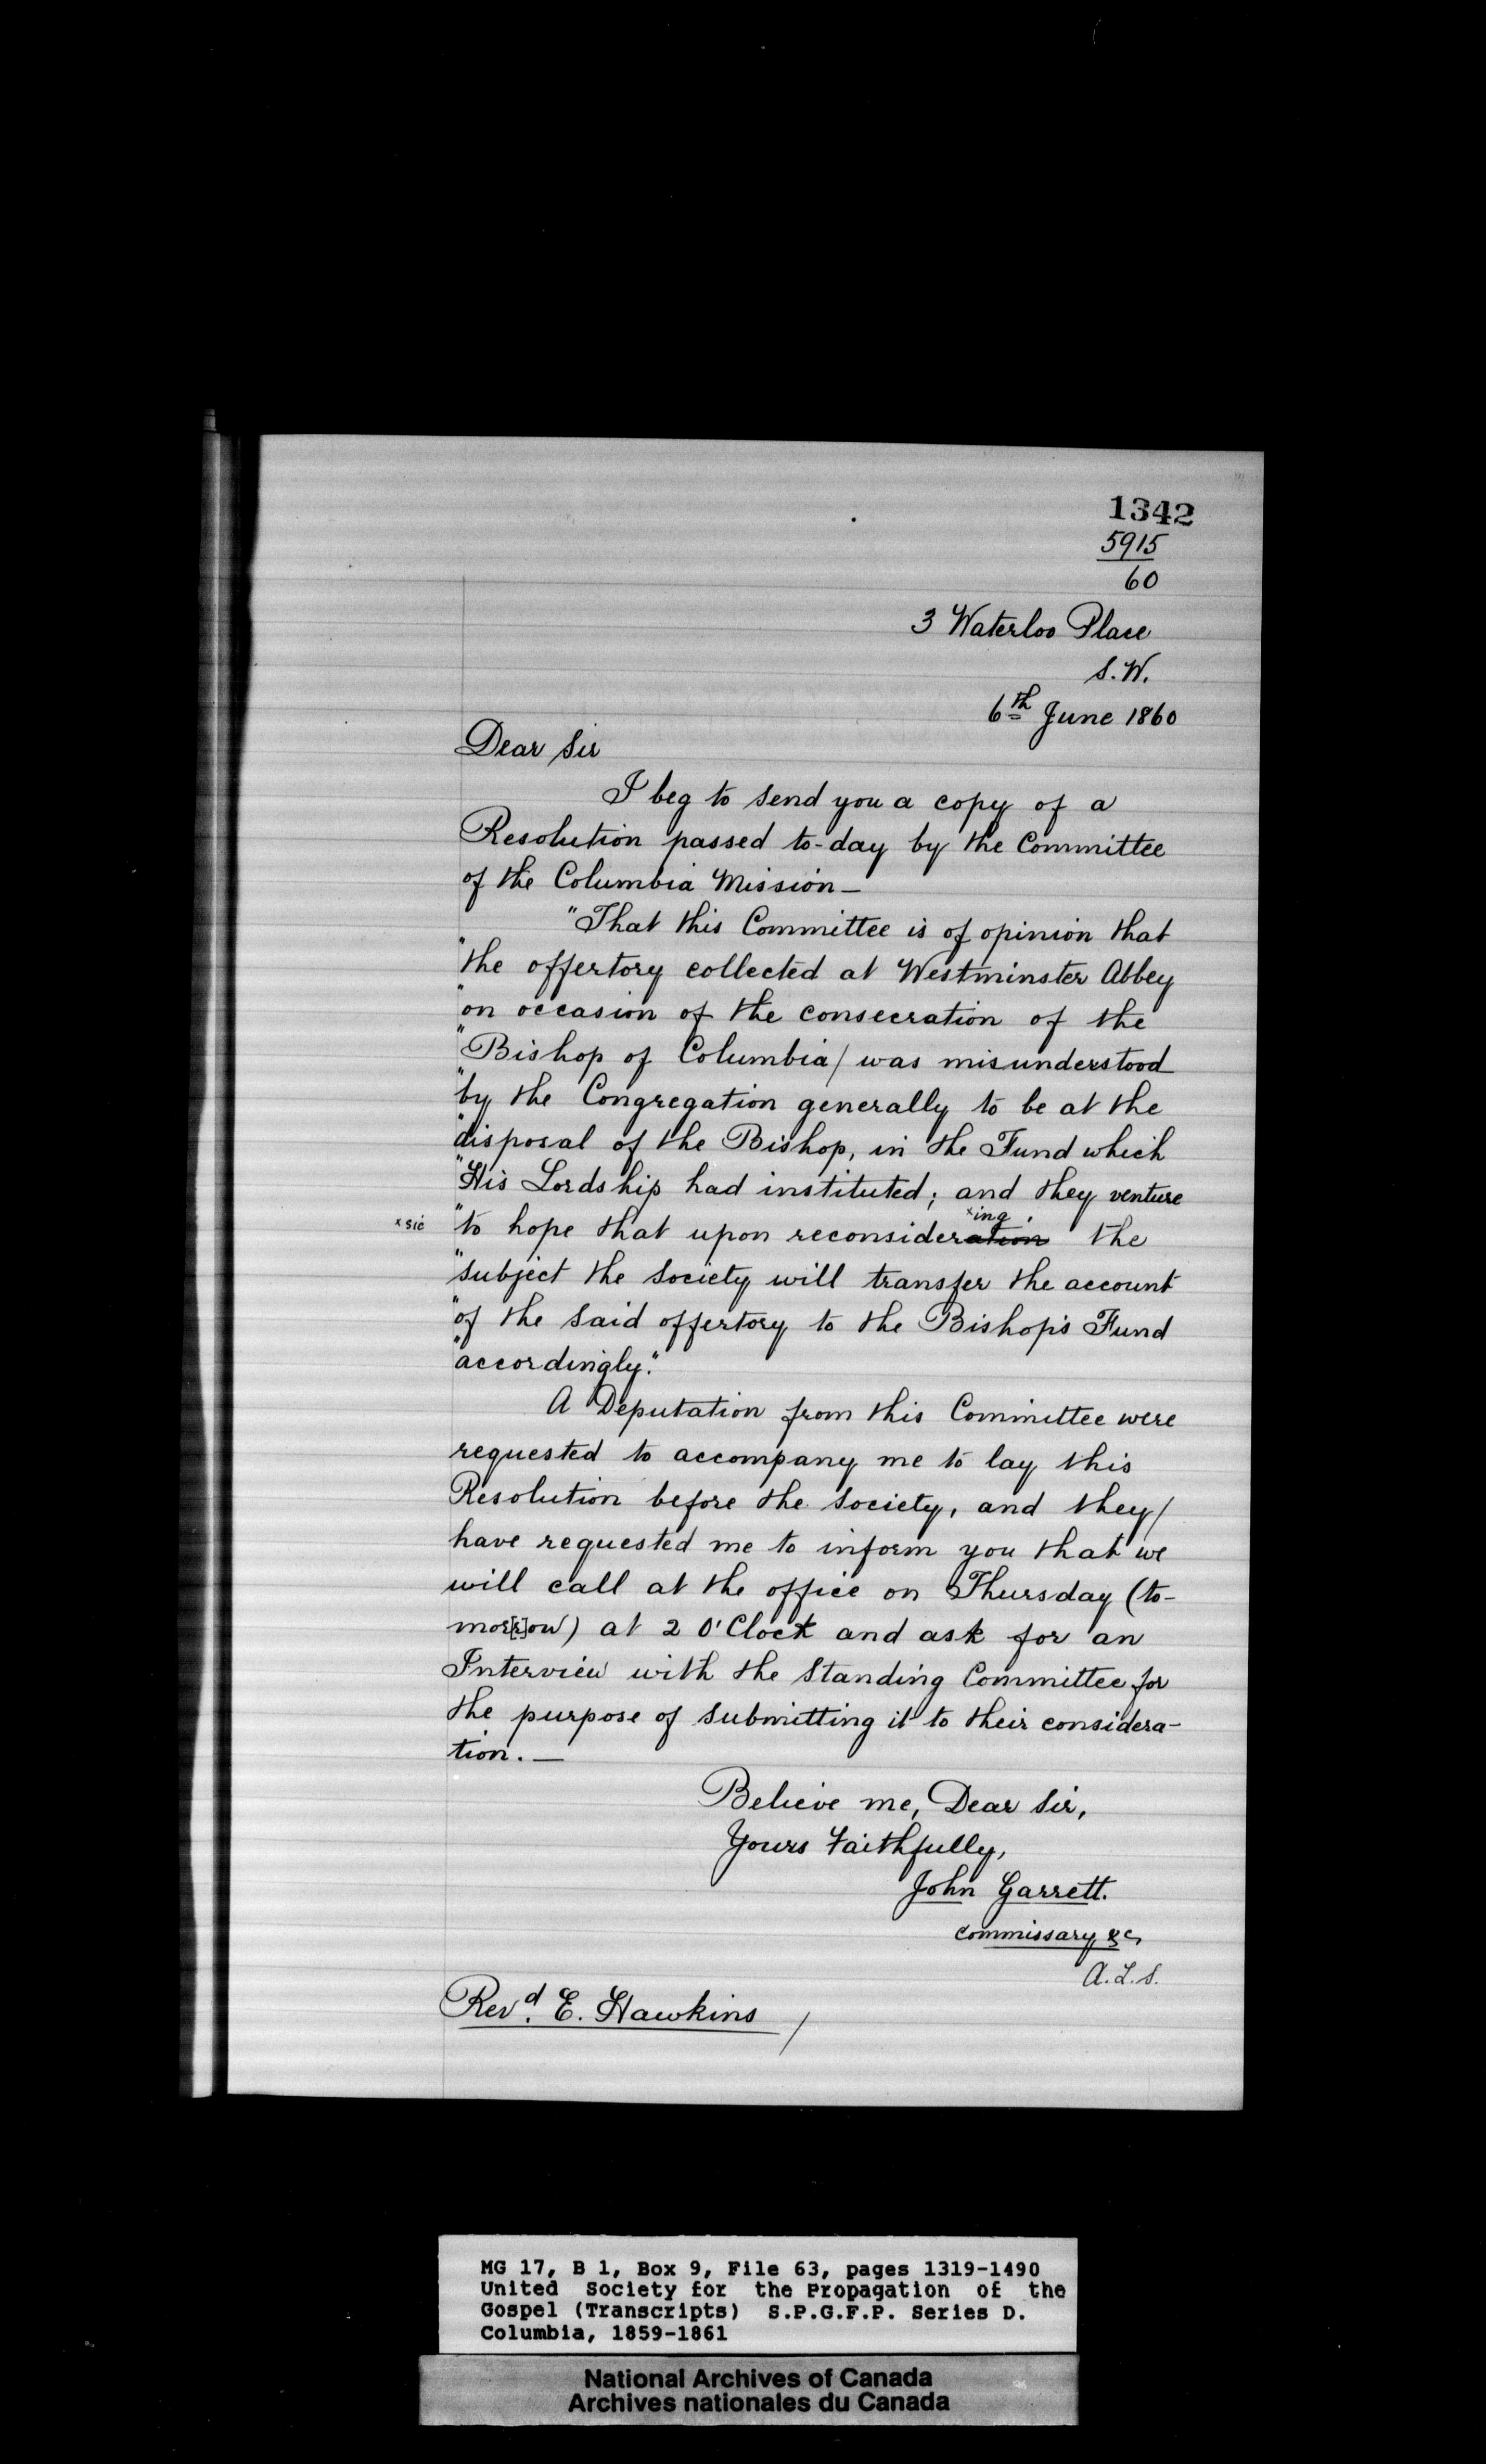 1342
5915
60
3 Waterloo Place
S.W.
6th June 1860
Dear Sir
I beg to send you a copy of a
Resolution passed to-day by the Committee
of the Columbia Mission—
"That this Committee is of opinion that
"the offertory collected at Westminster Abbey
"on occasion of the consecration of the
"Bishop of Columbia/ was misunderstood
"by the Congregation generally to be at the
"disposal of the Bishop, in the Fund which
"His Lordship had instituted; and they venture
xing
x sic "to hope that upon reconsideration the
"subject the Society will transfer the account
"of the said offertory to the Bishop's Fund
"accordingly."
A Deputation from this Committee were
requested to accompany me to lay this
Resolution before the Society, and they/
have requested me to inform you that we
will call at the office on Thursday (to-
mor[r]ow) at 2 O'Clock and ask for an
Interview with the Standing Committee for
the purpose of submitting it to their considera-
tion.—
Believe me, Dear Sir,
Yours Faithfully,
John Garrett.
Commissary &c,
A.L.S.
Revd. E. Hawkins /
MG 17, B 1, Box 9, File 63, pages 1319-1490
United Society for the Propagation of the
Gospel (Transcripts) S.P.G.F.P. Series D.
Columbia, 1859-1861
National Archives of Canada
Archives nationales du Canada